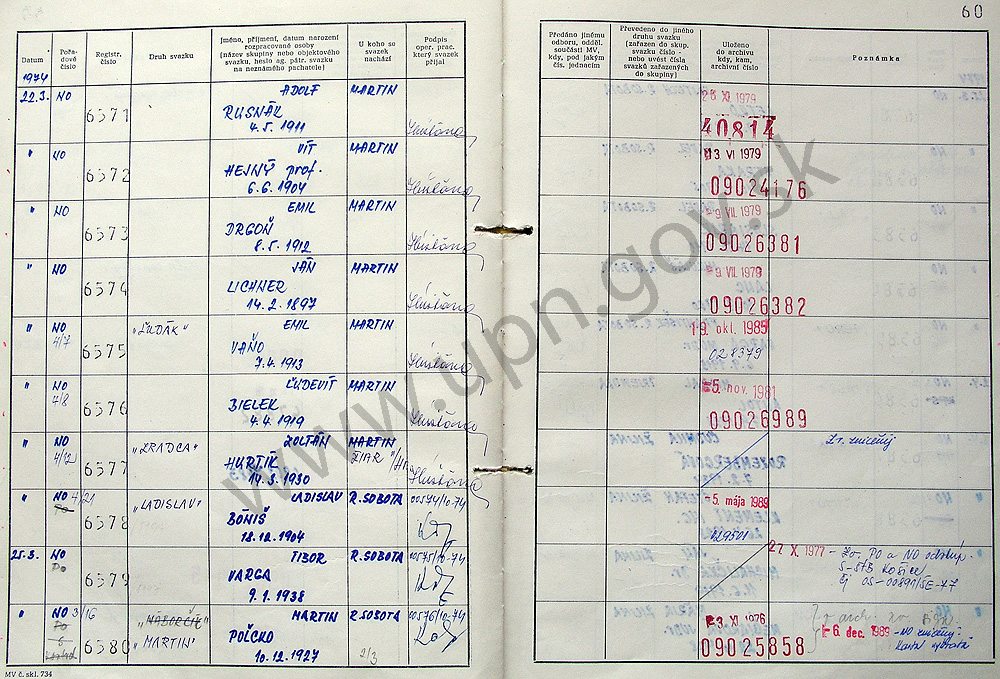 60
Datum
Pořadové číslo
Registr. číslo
Druh svazku
Jméno, příjmení, datum narození rozpracované osoby (název skupiny nebo objektového svazku, heslo ag. pátr. svazku na neznámého pachatele)
U koho se svazek nachází
Podpis oper. prac. který svazek přijal
Předáno jinému odboru, odděl. součásti MV, kdy, pod jakým čís. jednacím
Převedeno do jiného druhu svazku (zařazen do skup. svazku číslo - nebo uvést čísla svazků zařazených do skupiny)
Uloženo do archivu kdy, kam, archivní číslo
Poznámka
1974
22.3. NO 6571 ADOLF MARTIN
RUSNÁK
4.5. 1911
28 XI 1979
40814
" NO 6572 VÍT MARTIN
HEJNÝ prof.
6.6. 1904
13 VI 1979
09024176
" NO 6573 EMIL MARTIN
DRGOŇ
8.5. 1912
9 VII 1979
09026381
" NO 6574 JÁN MARTIN
LICHNER
14.2. 1897
9 VII 1979
09026382
" NO 4/7 6575 „ĽUDÁK" EMIL MARTIN
VAŇO
7.4. 1913
19. okt. 1985
028379
" NO 7/8 6576 ĽUDEVÍT MARTIN
BIELEK
4.4. 1919
5. nov. 1981
09026989
" NO 6577 „ZRADCA" ZOLTÁN MARTIN
HURTÍK
19.3. 1930
Zv. zničený
" NO 4/21 6578 „LADISLAV" LADISLAV R.SOBOTA 00574/10-74
BÖNIŠ
18.12. 1904
-5. mája 1989
029501
25.3. NO PO 6579 TIBOR R.SOBOTA 00575/10-74
VARGA
9.1. 1938
27 X. 1977 - Zv. PO a NO odstúp.
S-ŠTB Košice
čj OS-00891/ŠE-77
" NO 3/16 6580 „NÁBORČÍK" „MARTIN" MARTIN R.SOBOTA 00576/10-74
POĽCKO
10.12. 1927
2/3
3 XI 1976
09025858
-6. dec. 1989 - NO zničený.
MV č. skl. 734
www.upn.gov.sk